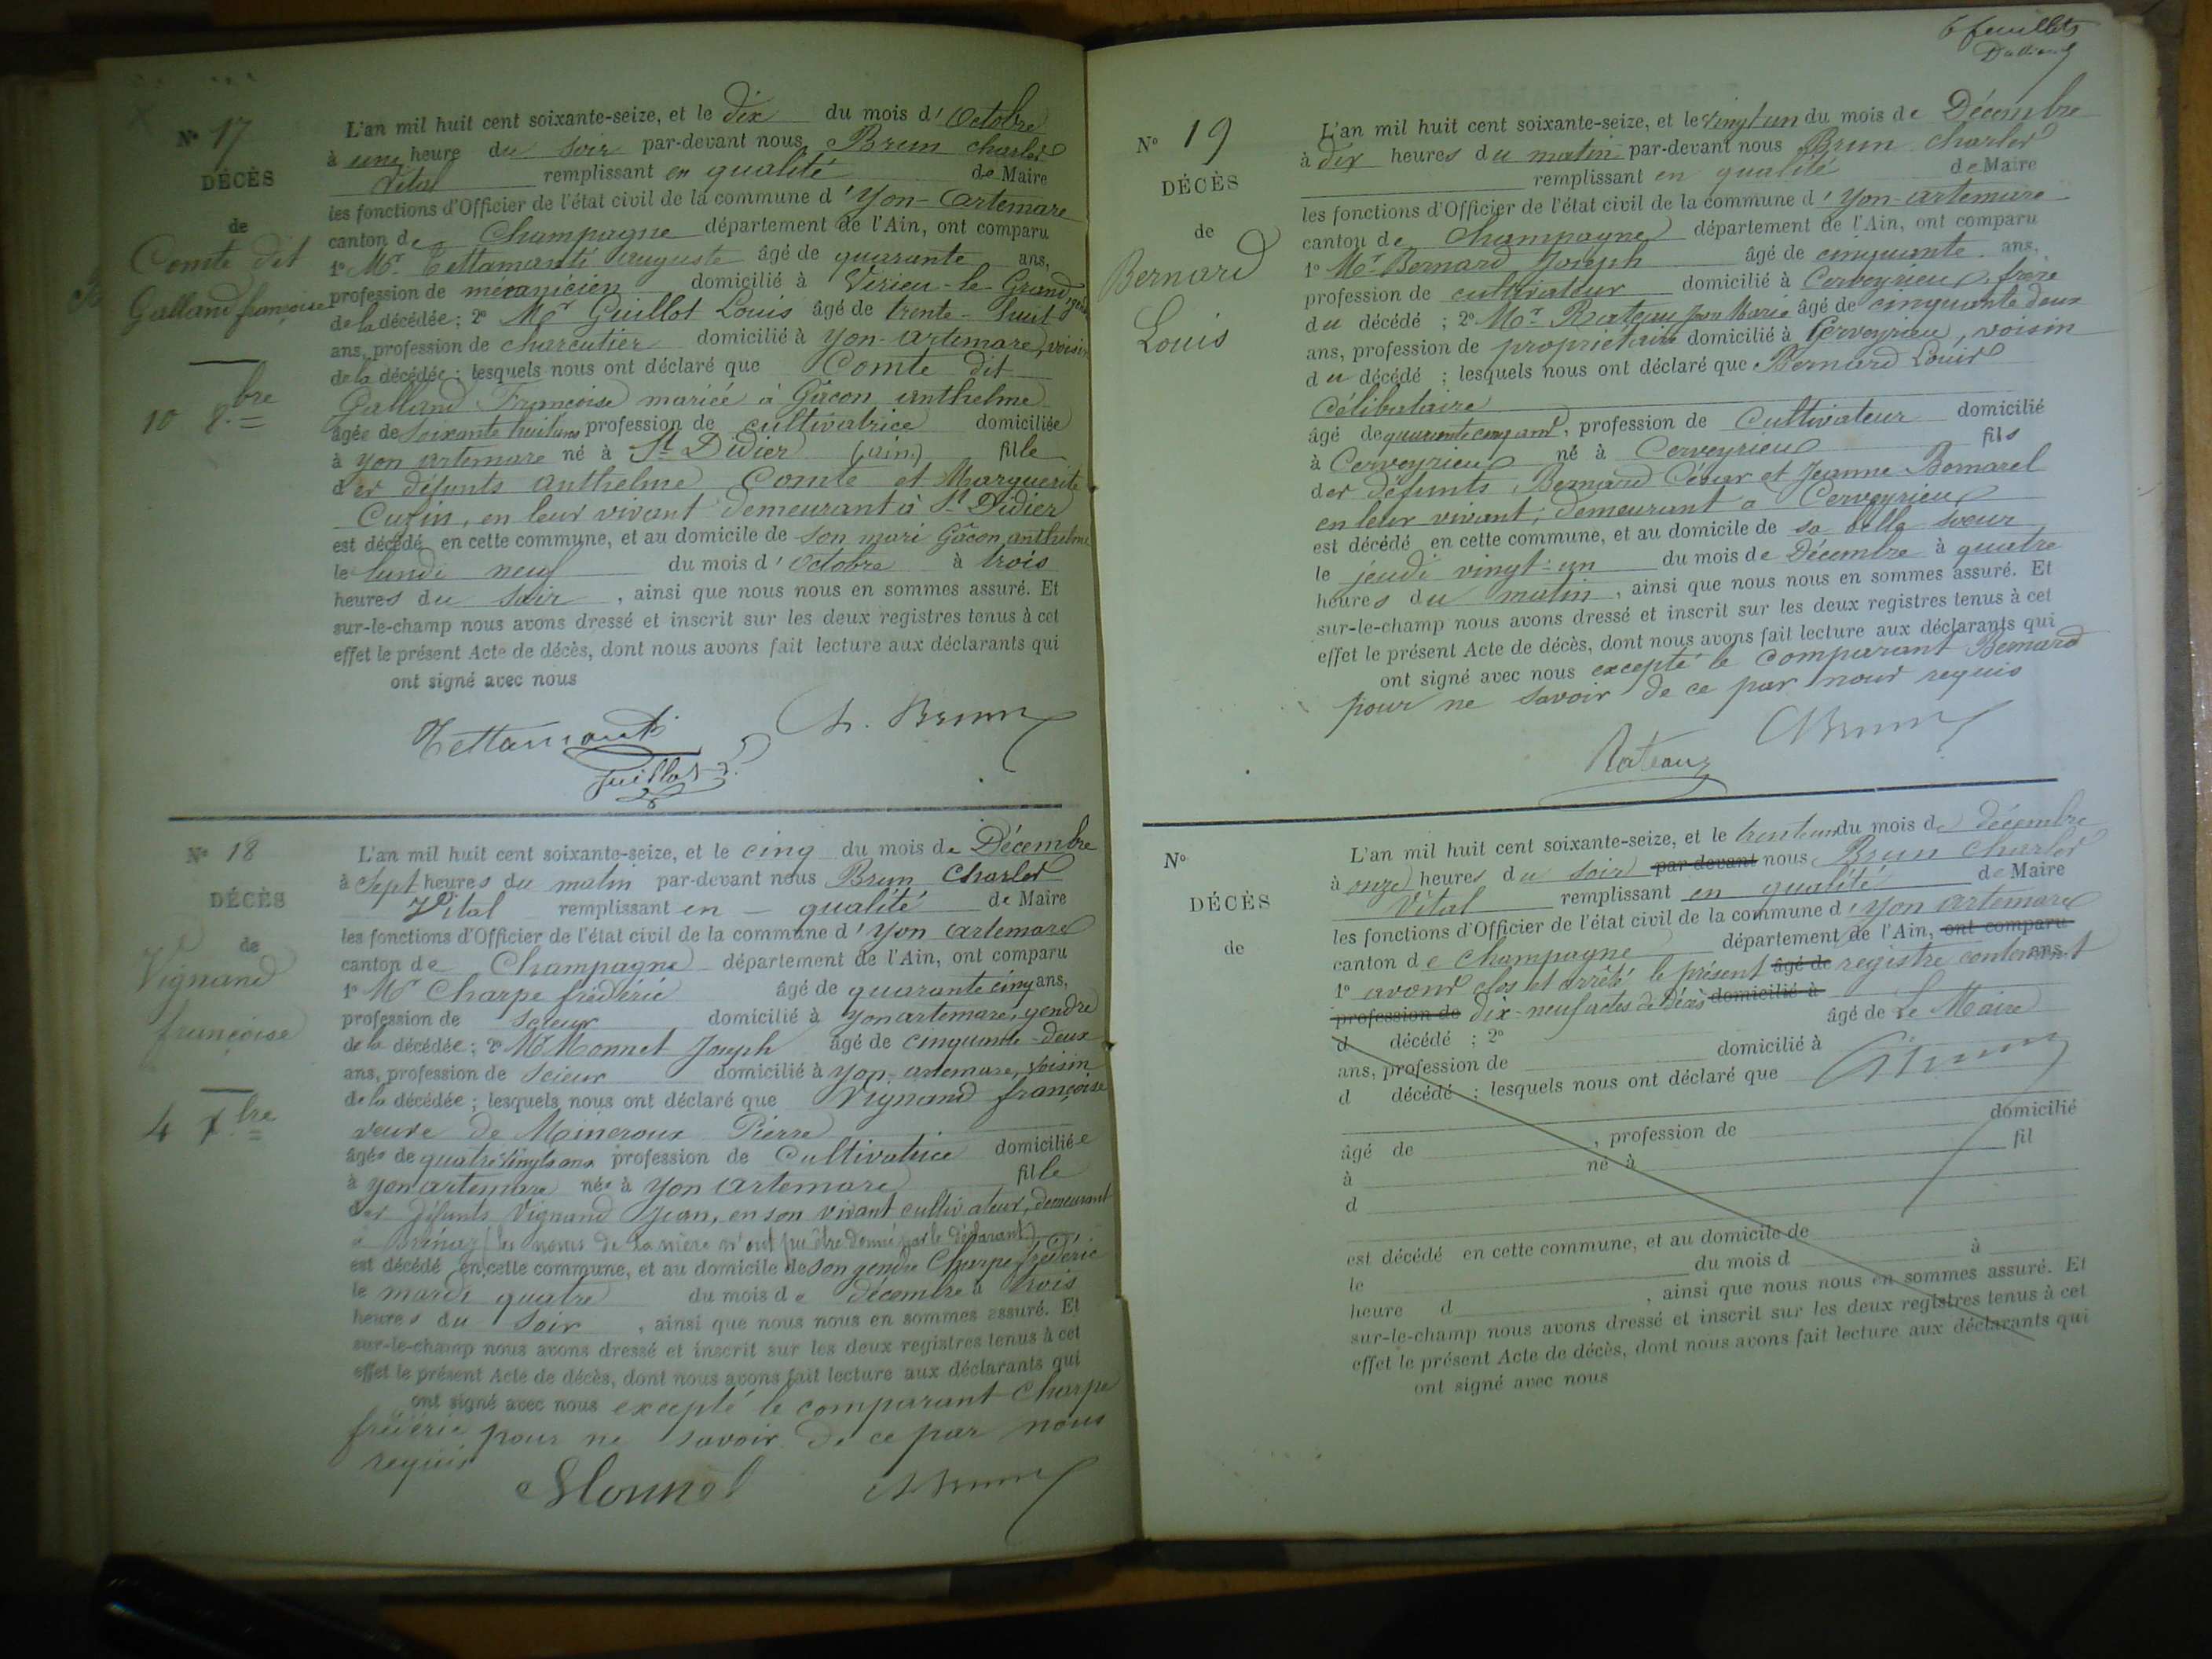 N° 17
DÉCÈS
de
Comte dit
Galland françoise
10 8.bre
L'an mil huit cent soixante-seize, et le dix du mois d'Octobre
à une heure du soir par-devant nous Brun charles
Vital remplissant en qualité de Maire
les fonctions d'Officier de l'état civil de la commune d'Yon-Artemare
canton de Champagne département de l'Ain, ont comparu
1° Mr. Tettamanti auguste âgé de quarante ans,
profession de mécanicien domicilié à Virieu-le-Grand,
de la décédée; 2° Mr Guillot Louis âgé de trente-huit
ans, profession de charcutier domicilié à Yon-artemare, voisin
de la décédée; lesquels nous ont déclaré que Comte dit
Galland Françoise mariée à Gâcon anthelme
âgée de soixante huit ans profession de cultivatrice domiciliée
à Yon artemare né à St Didier (ain) fille
des défunts anthelme Comte et Marguerite
Cuzin, en leur vivant demeurant à St Didier
est décédé en cette commune, et au domicile de son mari Gâcon anthelme
le lundi neuf du mois d'Octobre à trois
heures du soir, ainsi que nous nous en sommes assuré. Et
sur-le-champ nous avons dressé et inscrit sur les deux registres tenus à cet
effet le présent Acte de décès, dont nous avons fait lecture aux déclarants qui
ont signé avec nous
Tettamanti Ch. Brun
Guillot
N° 18
DÉCÈS
de
Vignand
françoise
4 X.bre
L'an mil huit cent soixante-seize, et le cinq du mois de Décembre
à sept heures du matin par-devant nous Brun Charles
Vital remplissant en qualité de Maire
les fonctions d'Officier de l'état civil de la commune d'Yon artemare
canton de Champagne département de l'Ain, ont comparu
1° Mr Charpe frédéric âgé de quarante cinq ans,
profession de scieur domicilié à Yon artemare, gendre
de la décédée; 2° Mr Monnet Joseph âgé de cinquante-deux
ans, profession de scieur domicilié à Yon-artemare, voisin
de la décédée; lesquels nous ont déclaré que Vignand françoise
veuve de Pierre
âgée de quatre vingts ans profession de Cultivatrice domiciliée
à Yon artemare née à Yon Artemare fille
des défunts Vignand Jean, en son vivant cultivateur, demeurant
a (les noms de la mère n'ont pu être donné par le déclarant)
est décédé en cette commune, et au domicile de son gendre Charpe frédéric
le mardi quatre du mois de décembre à trois
heures du soir, ainsi que nous nous en sommes assuré. Et
sur-le-champ nous avons dressé et inscrit sur les deux registres tenus à cet
effet le présent Acte de décès, dont nous avons fait lecture aux déclarants qui
ont signé avec nous excepté le comparant Charpe
frédéric pour ne savoir de ce par nous
requis
Monnet Ch Brun
6 feuillets
N° 19
DÉCÈS
de
Bernard
Louis
L'an mil huit cent soixante-seize, et le vingt un du mois de Décembre
à dix heures du matin par-devant nous Brun Charles
remplissant en qualité de Maire
les fonctions d'Officier de l'état civil de la commune d'Yon-artemare
canton de Champagne département de l'Ain, ont comparu
1° Mr Bernard Joseph âgé de cinquante ans,
profession de cultivateur domicilié à Cerveyrieu, frère
du décédé; 2° Mr Rateau Jean Marie âgé de cinquante deux
ans, profession de propriétaire domicilié à Cerveyrieu, voisin
du décédé; lesquels nous ont déclaré que Bernard Louis
célibataire
âgé de quarante cinq ans, profession de Cultivateur domicilié
à Cerveyrieu né à Cerveyrieu fils
des défunts Bernard César et Jeanne Bomarel
en leur vivant, demeurant a Cerveyrieu
est décédé en cette commune, et au domicile de sa belle soeur
le jeudi vingt-un du mois de Décembre à quatre
heures du matin, ainsi que nous nous en sommes assuré. Et
sur-le-champ nous avons dressé et inscrit sur les deux registres tenus à cet
effet le présent Acte de décès, dont nous avons fait lecture aux déclarants qui
ont signé avec nous excepté le comparant Bernard
pour ne savoir de ce par nous requis
Rateau ChBrun
N°
DÉCÈS
de
L'an mil huit cent soixante-seize, et le trente un du mois de décembre
à onze heures du soir par-devant nous Brun Charles
Vital remplissant en qualité de Maire
les fonctions d'Officier de l'état civil de la commune d'Yon artemare
canton de Champagne département de l'Ain, ont comparu
1° avons clos et arrêté le présent âgé de registre contenant ans,
profession de dix-neuf actes de décès domicilié à
d décédé; 2° âgé de Le Maire
ans, profession de domicilié à
d décédé; lesquels nous ont déclaré que ChBrun
âgé de , profession de domicilié
à né à fil
d
est décédé en cette commune, et au domicile de
le du mois d à
heure d , ainsi que nous nous en sommes assuré. Et
sur-le-champ nous avons dressé et inscrit sur les deux registres tenus à cet
effet le présent Acte de décès, dont nous avons fait lecture aux déclarants qui
ont signé avec nous